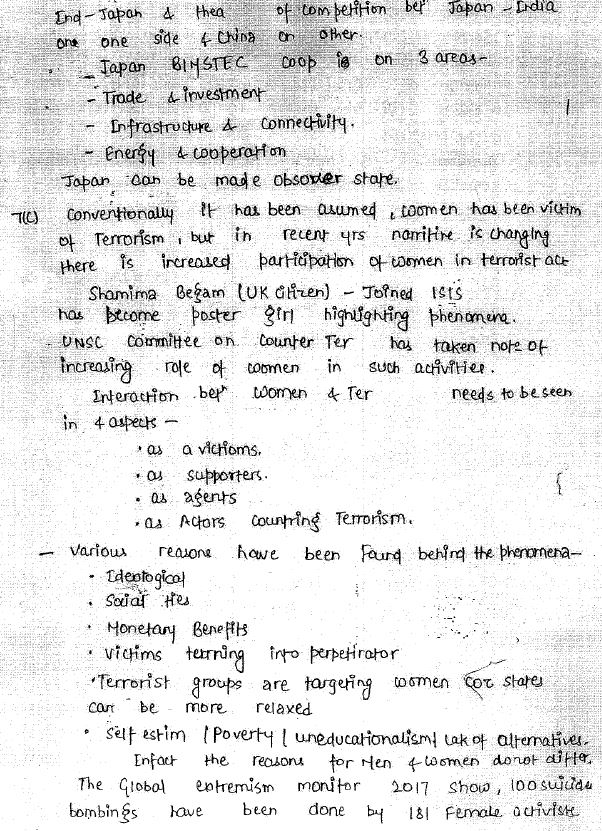 Ind-Japan & thea of competition betⁿ Japan - India
one one side & China on other.
- Japan BIMSTEC coop is on 3 areas-
- Trade & investment
- Infrastructure & Connectivity.
- Energy & cooperation
Japan can be made obsorver state.
7(C) Conventionally it has been asumed, women has been victim
of Terrorism, but in recent yrs narritive is changing
there is increased participation of women in terrorist act
Shamima Begam (UK Citizen) - Joined ISIS
has become poster girl highlighting phenomena.
UNSC Committee on Counter Ter has taken note of
increasing role of women in such activities.
Interaction betⁿ Women & Ter needs to be seen
in 4 aspects -
• as a victioms.
• as supporters.
• as agents
• as Actors countring Terrorism.
- Various reasons have been found behind the phenomena-
• Ideological
• Social ties
• Monetary Benefits
• Victims terning into perpetirator
• Terrorist groups are targeting women coz states
can be more relaxed
• Self estim / Poverty / uneducationalism / lak of alternatives.
Infact the reasons for Men & women donot differ.
The Global extremism monitor 2017 show, 100 suicide
bombings have been done by 181 Female activists